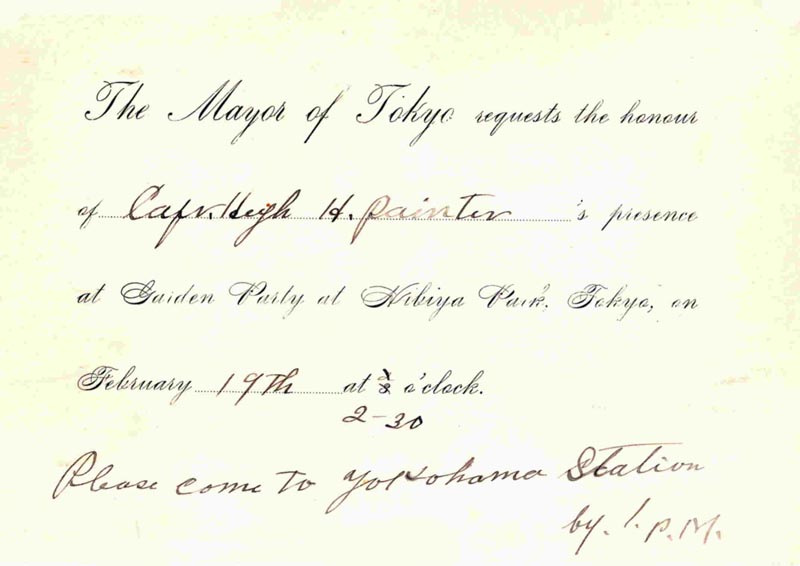 The Mayor of Tokyo requests the honour
of Capt. Hugh H. Painter 's presence
at Garden Party at Hibiya Park, Tokyo, on
February 19th at o'clock.
2-30
Please come to Yokohama Station
by. 1. P.M.